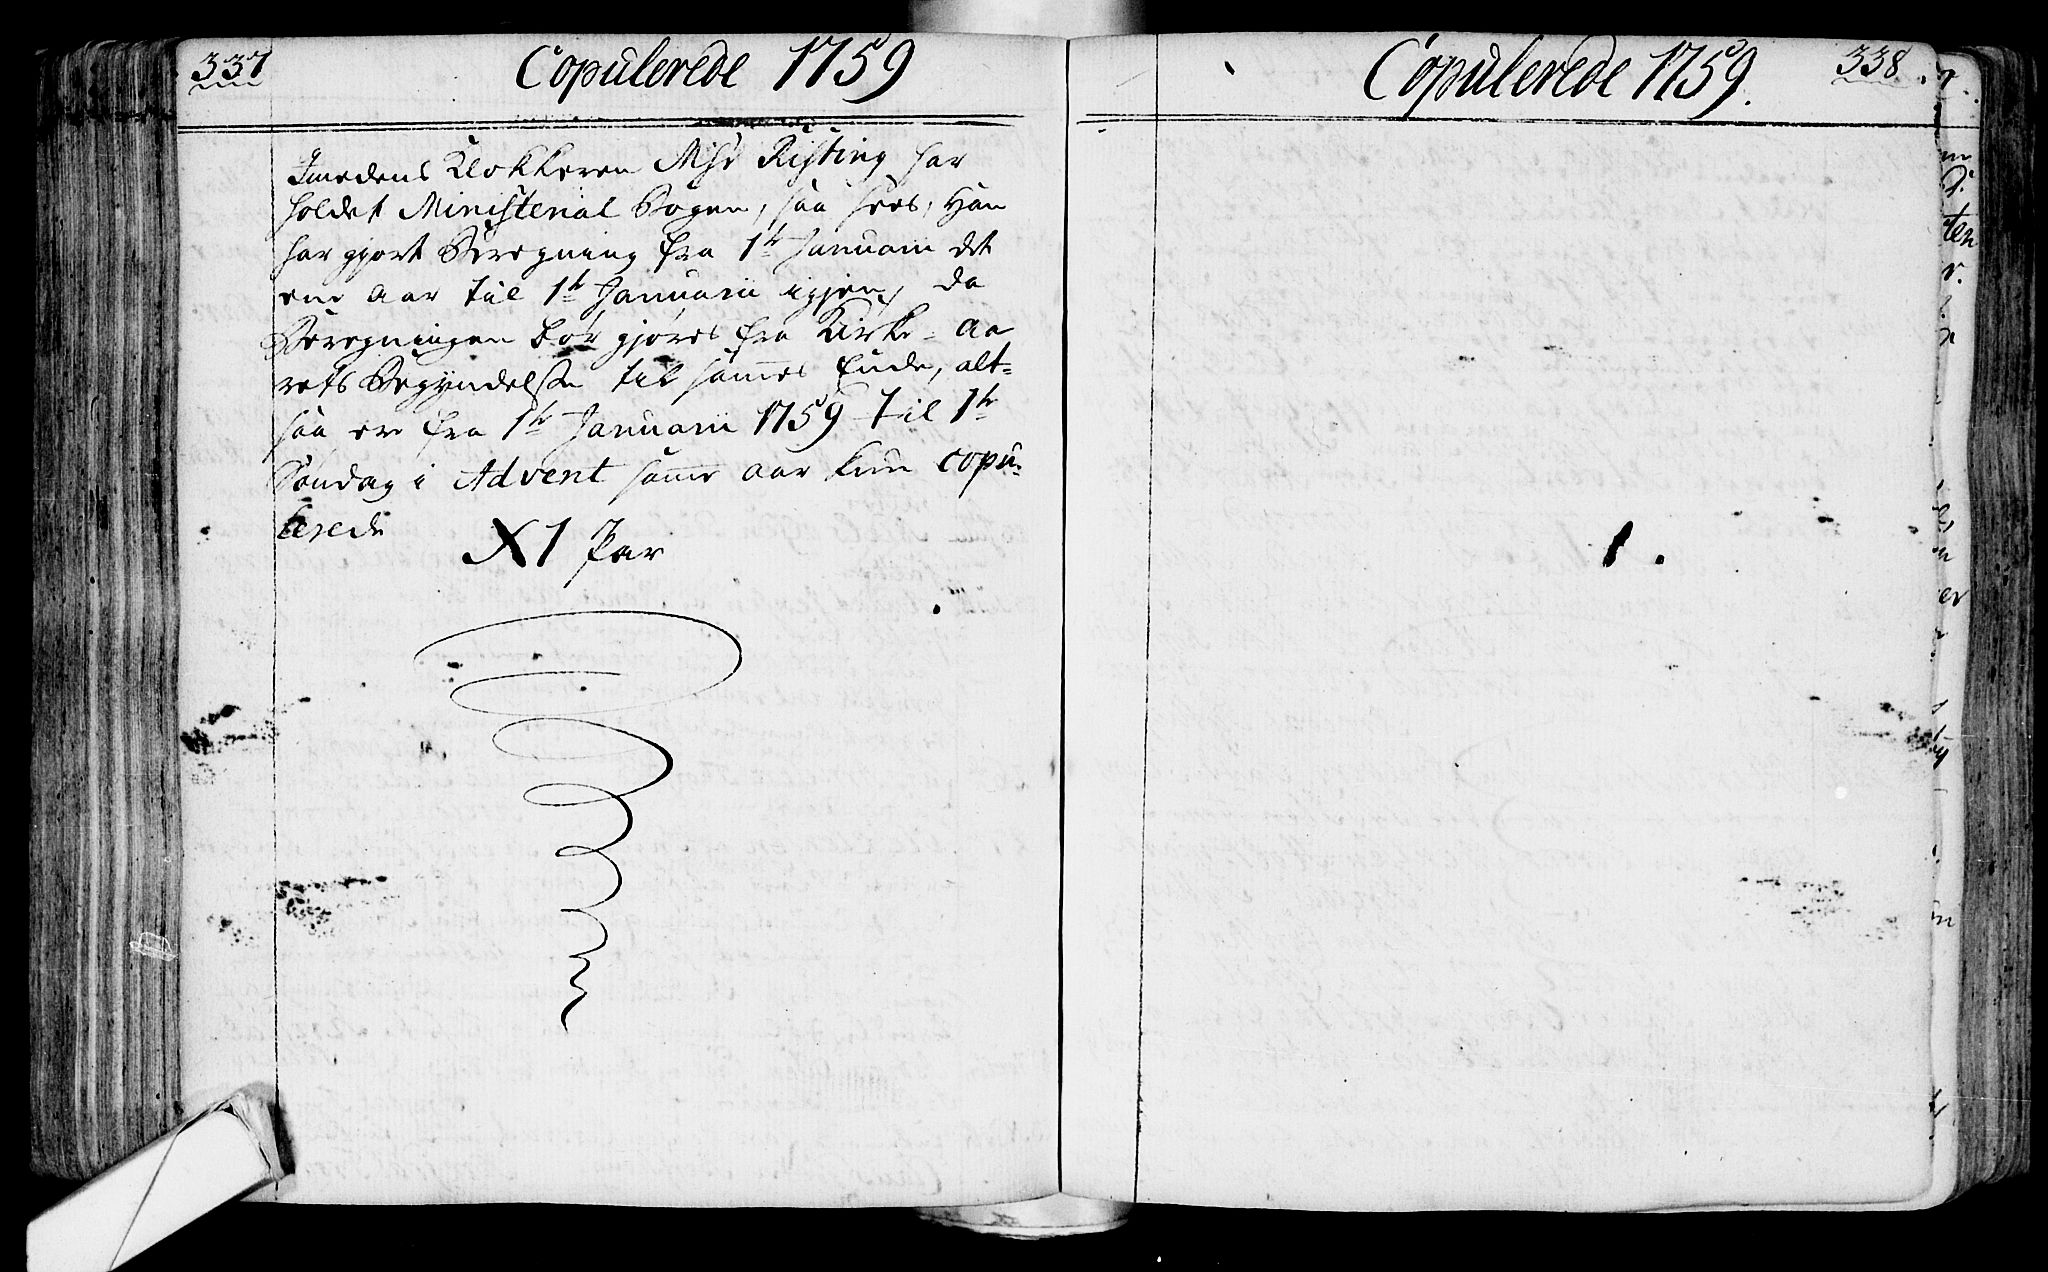 337
Copulerede 1759
Imedens Klokkeren Msr Risting har
holdet Ministerial Bogen, saa sees, Han
har gjort Beregning fra 1te Januarii det
ene Aar til 1te Januarii igjen, da
Beregningen bør gjøres fra Kirke-Aa
rets Begyndelse til sammes Ende, alt=
saa ere fra 1te Januarii 1759 til 1te
Søndag i Advent samme Aar kun copu-
lerede
XI Par
338
Copulerede 1759.